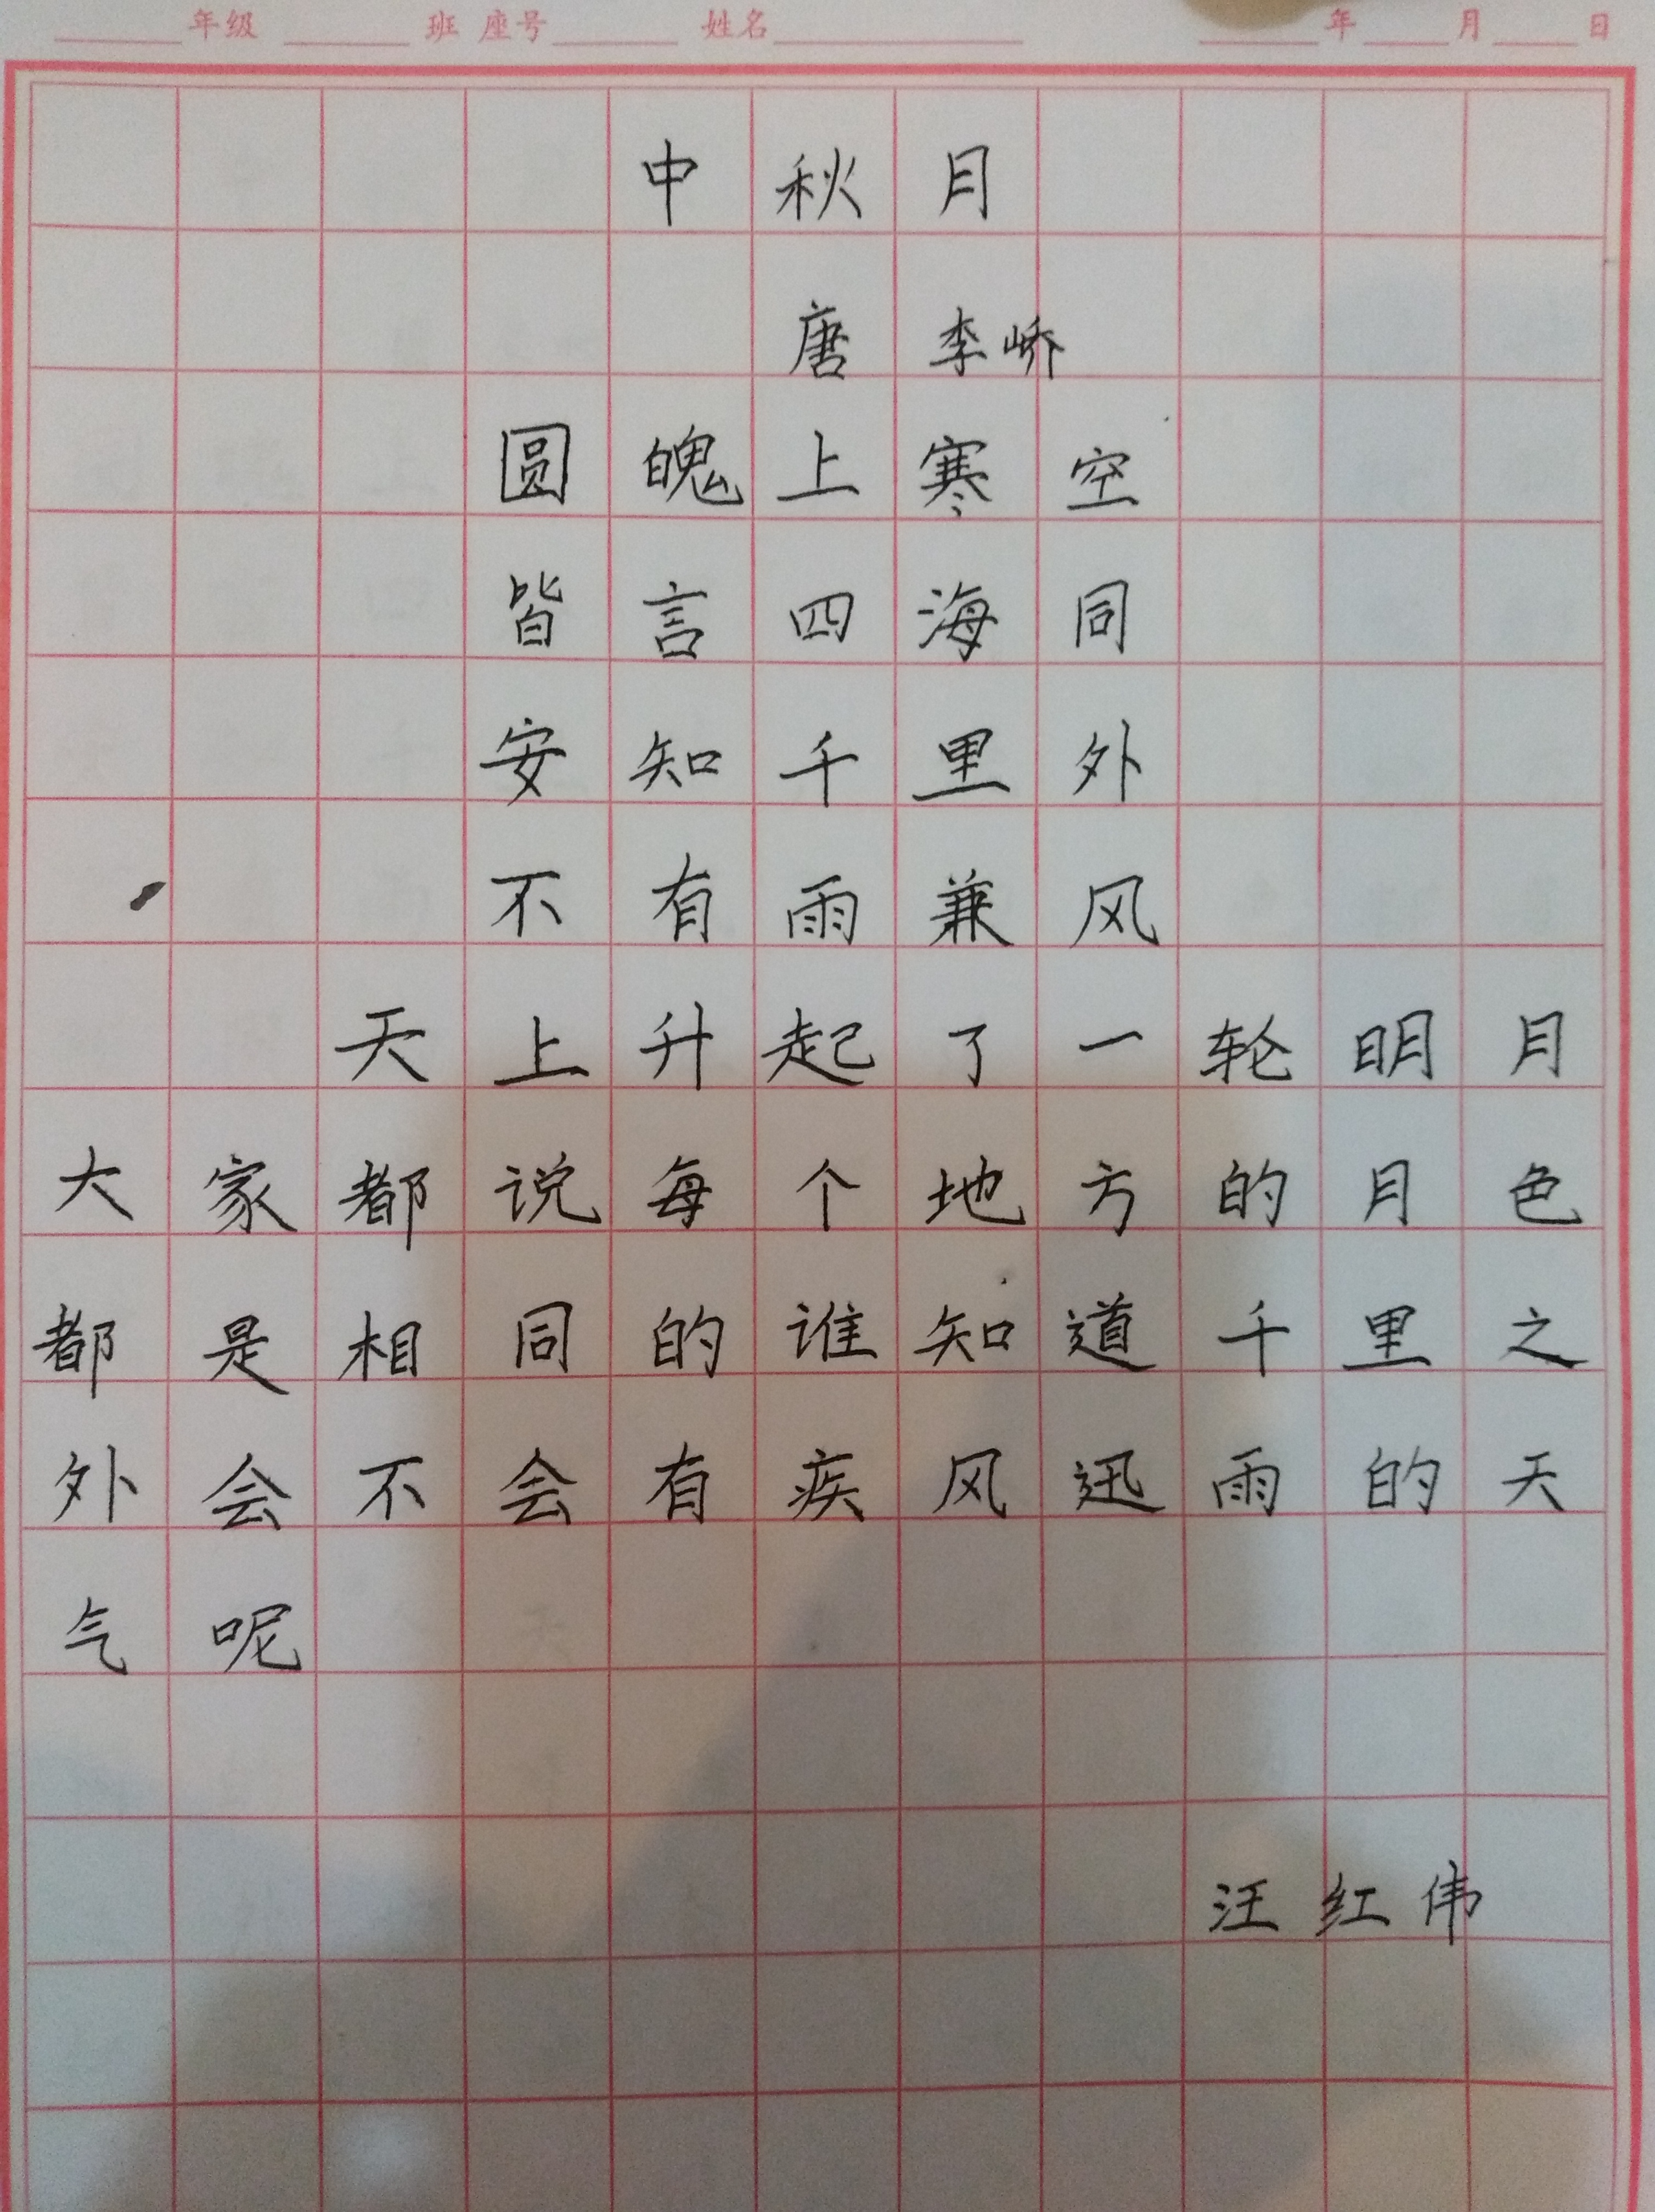 年级 班 座号 姓名 年 月 日
中秋月
唐 李峤
圆魄上寒空
皆言四海同
安知千里外
不有雨兼风
天上升起了一轮明月
大家都说每个地方的月色
都是相同的谁知道千里之
外会不会有疾风迅雨的天
气呢
汪红伟